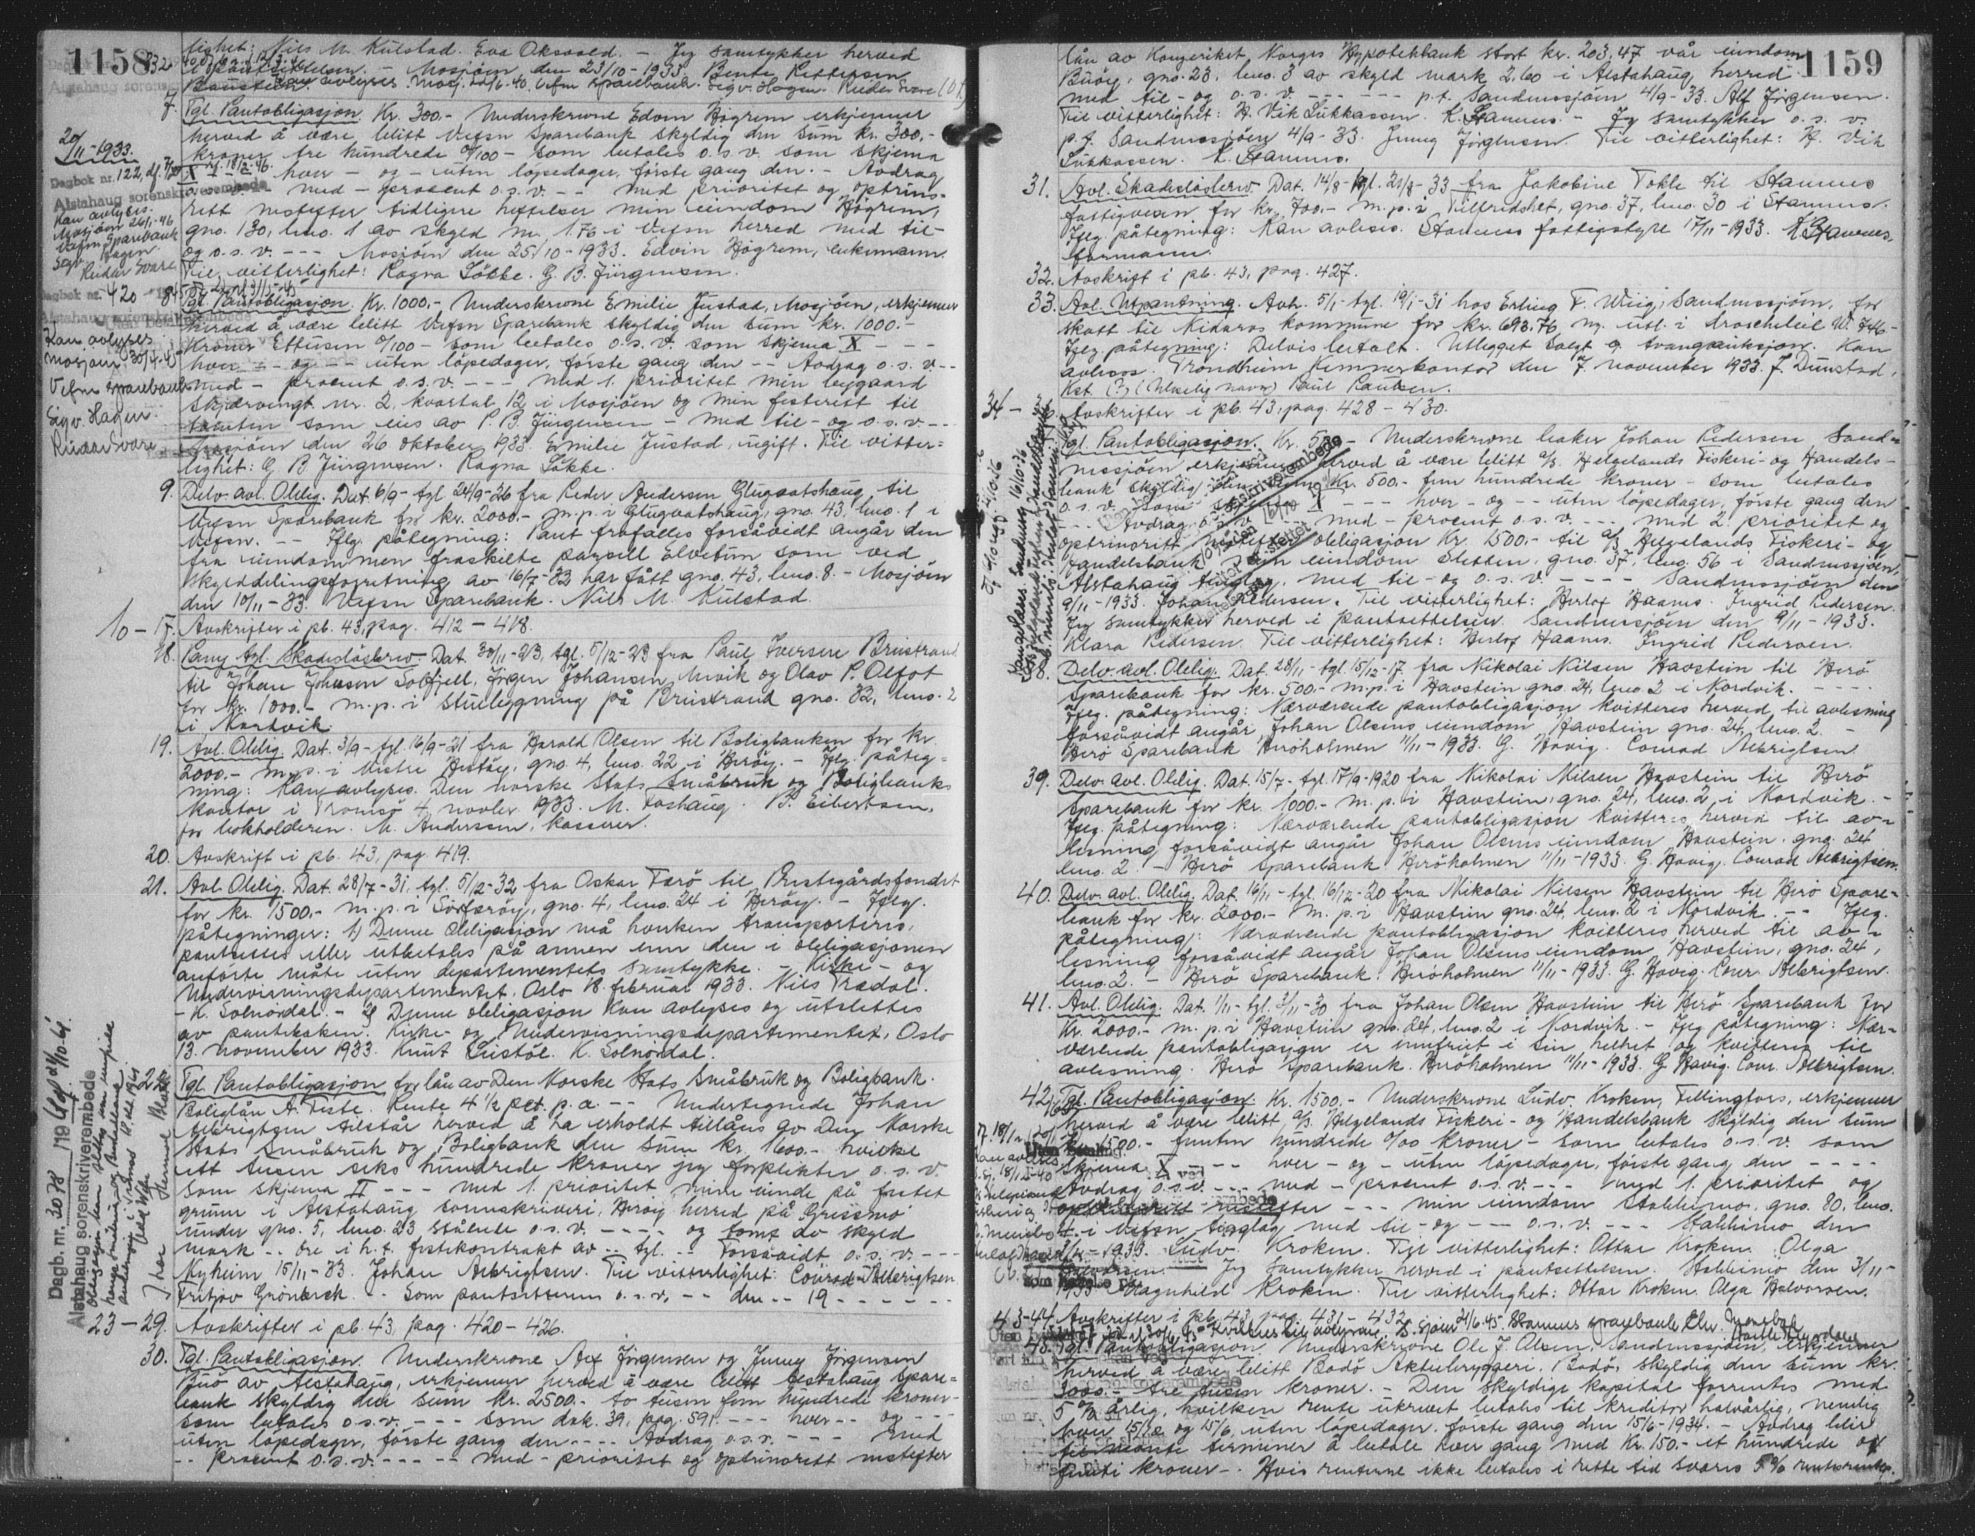 1158
lighet: Nils M. Kulstad. Eva Oksvold. – Jeg samtykker herved
i pantsettelsen. – Mosjøen den 23/10 – 1933. Bente Pettersen
7. Tgl. Pantobligasjon. Kr. 300.- Underskrevne Edvin Høgrem erkjenner
herved å være blitt Vefsn Sparebank skyldig den sum kr. 300,-
kroner tre hundrede 0/100 – som betales o.s.v. som skjema
X – – – hver – og – uten løpedager, første gang den – Avdrag
o.s.v. – med – procent o.s.v. – – med prioritet og optrins-
rett nestefter tidligere heftelser min eiendom Høgrem,
gno. 130, bno. 1 av skyld m. 1.76 i Vefsn herred med til-
og o.s.v. – – – Mosjøen den 25/10 – 1933. Edvin Høgrem, enkemann.
Til vitterlighet: Ragna Løkke. G. B. Jürgensen.
20/11 – 1933.
Dagbok nr. 122
Alstahaug sorenskriverembede
Kan avlyses.
Mosjøen 26/1-46
Vefsn Sparebank
Sigv. Hagen
Peder Svare
8. Tgl. Pantobligasjon. Kr. 1000.- Underskrevne Emilie Justad, Mosjøen, erkjenner
herved å være blitt Vefsn Sparebank skyldig den sum kr. 1000.-
Kroner Ettusen 0/100 – som betales o.s.v. som skjema X – – –
hver – – og – – uten løpedager, første gang den – – Avdrag o.s.v. – –
med – procent o.s.v. – – – med 1. prioritet min bygaard
Skjærvengt. nr. 2, kvartal 12 i Mosjøen og min festerett til
tomten som eies av P. B. Jürgensen – med til – og o.s.v. – –
Mosjøen den 26 oktober 1933. Emilie Justad, ugift. Til vitter-
lighet: G B Jürgensen. Ragna Løkke.
Dagbok nr. 420
Kan avlyses
Mosjøen 30/4-45
Vefsn Sparebank
Sigv. Hagen.
Peder Svare
9. Delv. avl. Oblig. Dat. 6/9 – tgl 24/9-26 fra Peder Andersen Glugvatshaug, til
Vefsn Sparebank for kr. 2000.- m. p. i Glugvatshaug, gno. 43, bno. 1 i
Vefsn. – – Iflg. påtegning: Pant frafalles forsåvidt angår den
fra eiendommen fraskilte parsell Elvetun som ved
skylddelingsforretning av 16/7-32 har fått gno. 43, bno. 8. – Mosjøen
den 10/11 – 33. Vefsn Sparebank. Nils M. Kulstad.
10 – 17. Avskrifter i pb. 43, pag. 412 – 418.
18. Pany tgl. Skadesløsbrev. Dat. 30/11 – 23, tgl. 5/12 – 23 fra Paul Iversen Brustrand
til Johan Johnsen Solfjell, Jørgen Johansen, Luvik og Olav P. Alfot
for kr. 1000.- m. p. i stuebygning på Brustrand gno. 82, bno. 2
i Nordvik
19. Avl. Oblig. Dat. 3/9 – tgl. 16/9 – 21 fra Harald Olsen til Boligbanken for kr.
2000.- m. p. i Nestre Hestøy, gno. 4, bno. 22 i Herøy. – Iflg. påteg-
ning: Kan avlyses. Den norske Stats Småbruk og Boligbanks
kontor i Tromsø 4 novbr 1933. M. Foshaug. P. Eibertsen.
for bokholderen. M. Anderssen, kasserer.
20. Avskrift i pb. 43, pag. 419.
21. Avl. Oblig. Dat. 28/7 – 31, tgl. 5/12 – 32 fra Oskar Færø til Prestegårdsfondet
for kr. 1500.- m. p. i Sørfærøy, gno. 4, bno. 24 i Herøy. – Iflg.
påtegninger: 1) Denne obligasjon må hverken transporteres,
pantsettes eller utbetales på annen enn den i obligasjonen
anførte måte uten departementets samtykke. – Kirke – og
Undervisningsdepartementet, Oslo 18. februar 1933. Nils Trædal.
– K. Solnördal. – 2) Denne obligasjon kan avlyses og utslettes
av panteboken. Kirke- og Undervisningsdepartementet, Oslo
13. november 1933. Knut Liestøl. K. Solnördal.
22. Tgl. Pantobligasjon for lån av Den Norske Stats Småbruk og Boligbank.
Boliglån A. Feste. Rente 4 1/2 pct. p. a. – – Undertegnede Johan
Albrigtsen tilstår herved å ha erholdt tillåns av Den Norske
Stats Småbruk og Boligbank den sum kr. 1600.- hvilke
ett tusen seks hundrede kroner jeg forplikter o.s.v.
som skjema II – – – med 1. prioritet mine eiende på festet
grunn i Alstahaug sorenskriveri, Herøy herred på Grinsmo
under gno. 5, bno. 23 stående o.s.v. – – – og tomt av skyld
mark – – øre i h. t. festekontrakt av – – tgl. – – Forsåvidt o.s.v. – – –
Nyheim 15/11 – 33. Johan Albrigtsen. Til vitterlighet: Conrad Albrigtsen
Fritjov Grønbech. – – Som pantsetteren o.s.v. – – den – – 19 – – –
Dagb. nr. 3078 /19
Alstahaug sorenskriverembede
23 – 29. Avskrifter i pb. 43, pag. 420 – 426.
30. Tgl. Pantobligasjon. Underskrevne Alf Jörgensen og Jenny Jörgensen
Buø av Alstahaug, erkjenner herved å være blitt Alstahaug Spare-
bank skyldig den sum kr. 2500.- to tusen fem hundrede kroner –
som betales o.s.v. – – – som dok. 39, pag. 591 – – – hver – – og – – –
uten løpedager, første gang den – – – Avdrag o.s.v. – – – med
– – procent o.s.v. – – – – med – prioritet og optrinsrett nestefter
1159
lån av Kongeriket Norges Hypotekbank stort kr. 203,47 vår eiendom
Buøy, gno. 23, bno. 3 av skyld mark 2.60 i Alstahaug herred
med til – og o.s.v. – – – – p. t. Sandnessjøen 4/9 – 33. Alf Jörgensen.
Til vitterlighet: H. Vik Lukkassen. K. Stamnes. – Jeg samtykker o.s.v.
p. t. Sandnessjøen 4/9 – 33. Jenny Jörgensen. Til vitterlighet: H. Vik
Lukkassen. K. Stamnes.
31. Avl. Skadesløsbrev. Dat. 14/8 – tgl. 21/8 – 33 fra Jakobine Tokle til Stamnes
fattigvesen for kr. 700.- m. p. i Tilfredshet, gno. 37, bno. 30 i Stamnes.
Iflg. påtegning: Kan avleses. Stamnes fattigstyre 17/11 – 1933. K Stamnes,
formann.
32. Avskrift i pb. 43, pag. 427.
33. Avl. Utpantning. Avh. 5/1 – tgl. 19/1 – 31 hos Erling F. Wiig, Sandnessjøen, for
skatt til Nidaros kommune for kr. 693.76, m. utl. i droschebil W. 746 –
Iflg påtegning: Delvis betalt. Utlegget solgt v. tvangsauksjon. Kan
avleses. Trondheim Kemnerkontor den 7. november 1933. J. Dunstad,
Kst. (?) (Uleselig navn) Paul Paulsen.
34 – 36. Avskrifter i pb. 43, pag. 428 – 430.
37. Tgl. Pantobligasjon. Kr. 500.- Underskrevne baker Johan Pedersen Sand-
nessjøen erkjenner herved å være blitt A/S Helgelands Fiskeri- og Handels-
bank skyldig den sum kr. 500.- fem hundrede kroner – som betales
o.s.v. som skjema X – – – hver – og – uten løpedager, første gang den
– – – Avdrag o.s.v. – – med – procent o.s.v. – – – med 2. prioritet og
optrinsrett nestefter obligasjon kr. 1500.- til A/S Helgelands Fiskeri- og
Handelsbank min eiendom Sletten, gno. 37, bno. 56 i Sandnessjøen,
Alstahaug tinglag, med til – og o.s.v. – – – – Sandnessjøen den
9/11 – 1933. Johan Pedersen. Til vitterlighet: Herlof Haams. Ingrid Pedersen.
Jeg samtykker herved i pantsettelsen. Sandnessjøen den 9/11 – 1933.
Klara Pedersen. Til vitterlighet: Herlof Haams. Ingrid Pedersen.
38. Delv. avl. Oblig. Dat. 28/11 – tgl. 15/12 – 17 fra Nikolai Nilsen Havstein til Herø
Sparebank for kr. 500.- m. p. i Havstein gno. 24, bno 2 i Nordvik. – – – –
Iflg. påtegning: Nærværende pantobligasjon kvitteres herved til avlesning
forsåvidt angår Johan Olsens eiendom Havstein gno. 24, bno. 2. –
Herø Sparebank Herøholmen 11/11 – 1933. G. Hovig. Conrad Albrigtsen
39. Delv. avl. Oblig. Dat. 15/7 – tgl. 17/9 – 1920 fra Nikolai Nilsen Havstein til Herø
Sparebank for kr. 1000.- m. p. i Havstein, gno. 24, bno. 2, i Nordvik. –
Iflg. påtegning: Nærværende pantobligasjon kvitteres herved til av-
lesning forsåvidt angår Johan Olsens eiendom Havstein, gno. 24
bno. 2. – Herø Sparebank Herøholmen 11/11 – 1933. G. Hovig. Conrad Albrigtsen
40. Delv. avl. Oblig. Dat. 16/11 – tgl. 16/12 – 20 fra Nikolai Nilsen Havstein til Herø Spare-
bank for kr. 2000.- m. p. i Havstein gno. 24, bno. 2 i Nordvik. – – Iflg.
påtegning: Nærværende pantobligasjon kvitteres herved til av-
lesning forsåvidt angår Johan Olsens eiendom Havstein, gno. 24,
bno. 2. – Herø Sparebank Herøholmen 11/11 – 1933. G. Hovig. Conr. Albrigtsen.
41. Avl. Oblig. Dat. 1/11 – tgl. 3/11 – 30 fra Johan Olsen Havstein til Herø Sparebank for
kr. 2000.- m. p. i Havstein gno. 24, bno. 2 i Nordvik. – Iflg påtegning: Nær-
værende pantobligasjon er innfriet i sin helhet og kvitteres til
avlesning. Herø Sparebank. Herøholmen 11/11 – 1933. G Hovig. Conr. Albrigtsen.
42. Tgl. Pantobligasjon. Kr. 1500.- Underskrevne Ludv. Kroken, Fellingfors, erkjenner
herved å være blitt A/S Helgelands Fiskeri- og Handelsbank skyldig den sum
kr. 1500.- femten hundrede 0/00 kroner – som betales o.s.v. som
skjema X – – – hver – og – uten løpedager, første gang den – – – –
Avdrag o.s.v. – – – med – procent o.s.v. – – – med 1. prioritet og
optrinsrett nestefter – – – min eiendom Stabbimo, gno. 80, bno.
4 i Vefsn tinglag med til – og – – – o.s.v. – – – Stabbimo den
3/11 – 1933. Ludv. Kroken. Til vitterlighet: Ottar Kroken. Olga
Halvorsen. – Jeg samtykker herved i pantsettelsen. Stabbimo den 3/11 –
1933. Magnhild Kroken. Til vitterlighet: Ottar Kroken. Olga Halvorsen.
43-44. Avskrifter i pb. 43, pag. 431 – 432.
45. Tgl. Pantobligasjon. Underskrevne Ole J. Olsen, Sandnessjøen, erkjenner
herved å være blitt Bodø Aktiebryggeri, Bodø, skyldig den sum kr.
3000.- tre tusen kroner. – Den skyldige kapital forrentes med
5 % årlig, hvilken rente ukrevet betales til kreditor halvårlig, nemlig
hver 15/12 og 15/6, uten løpedager, første gang den 15/6 – 1934. – Avdrag blir
terminer å betale hver gang med kr. 150.- et hundrede og
femti kroner –. Hvis renterne ikke betales i rette tid svares 5 %